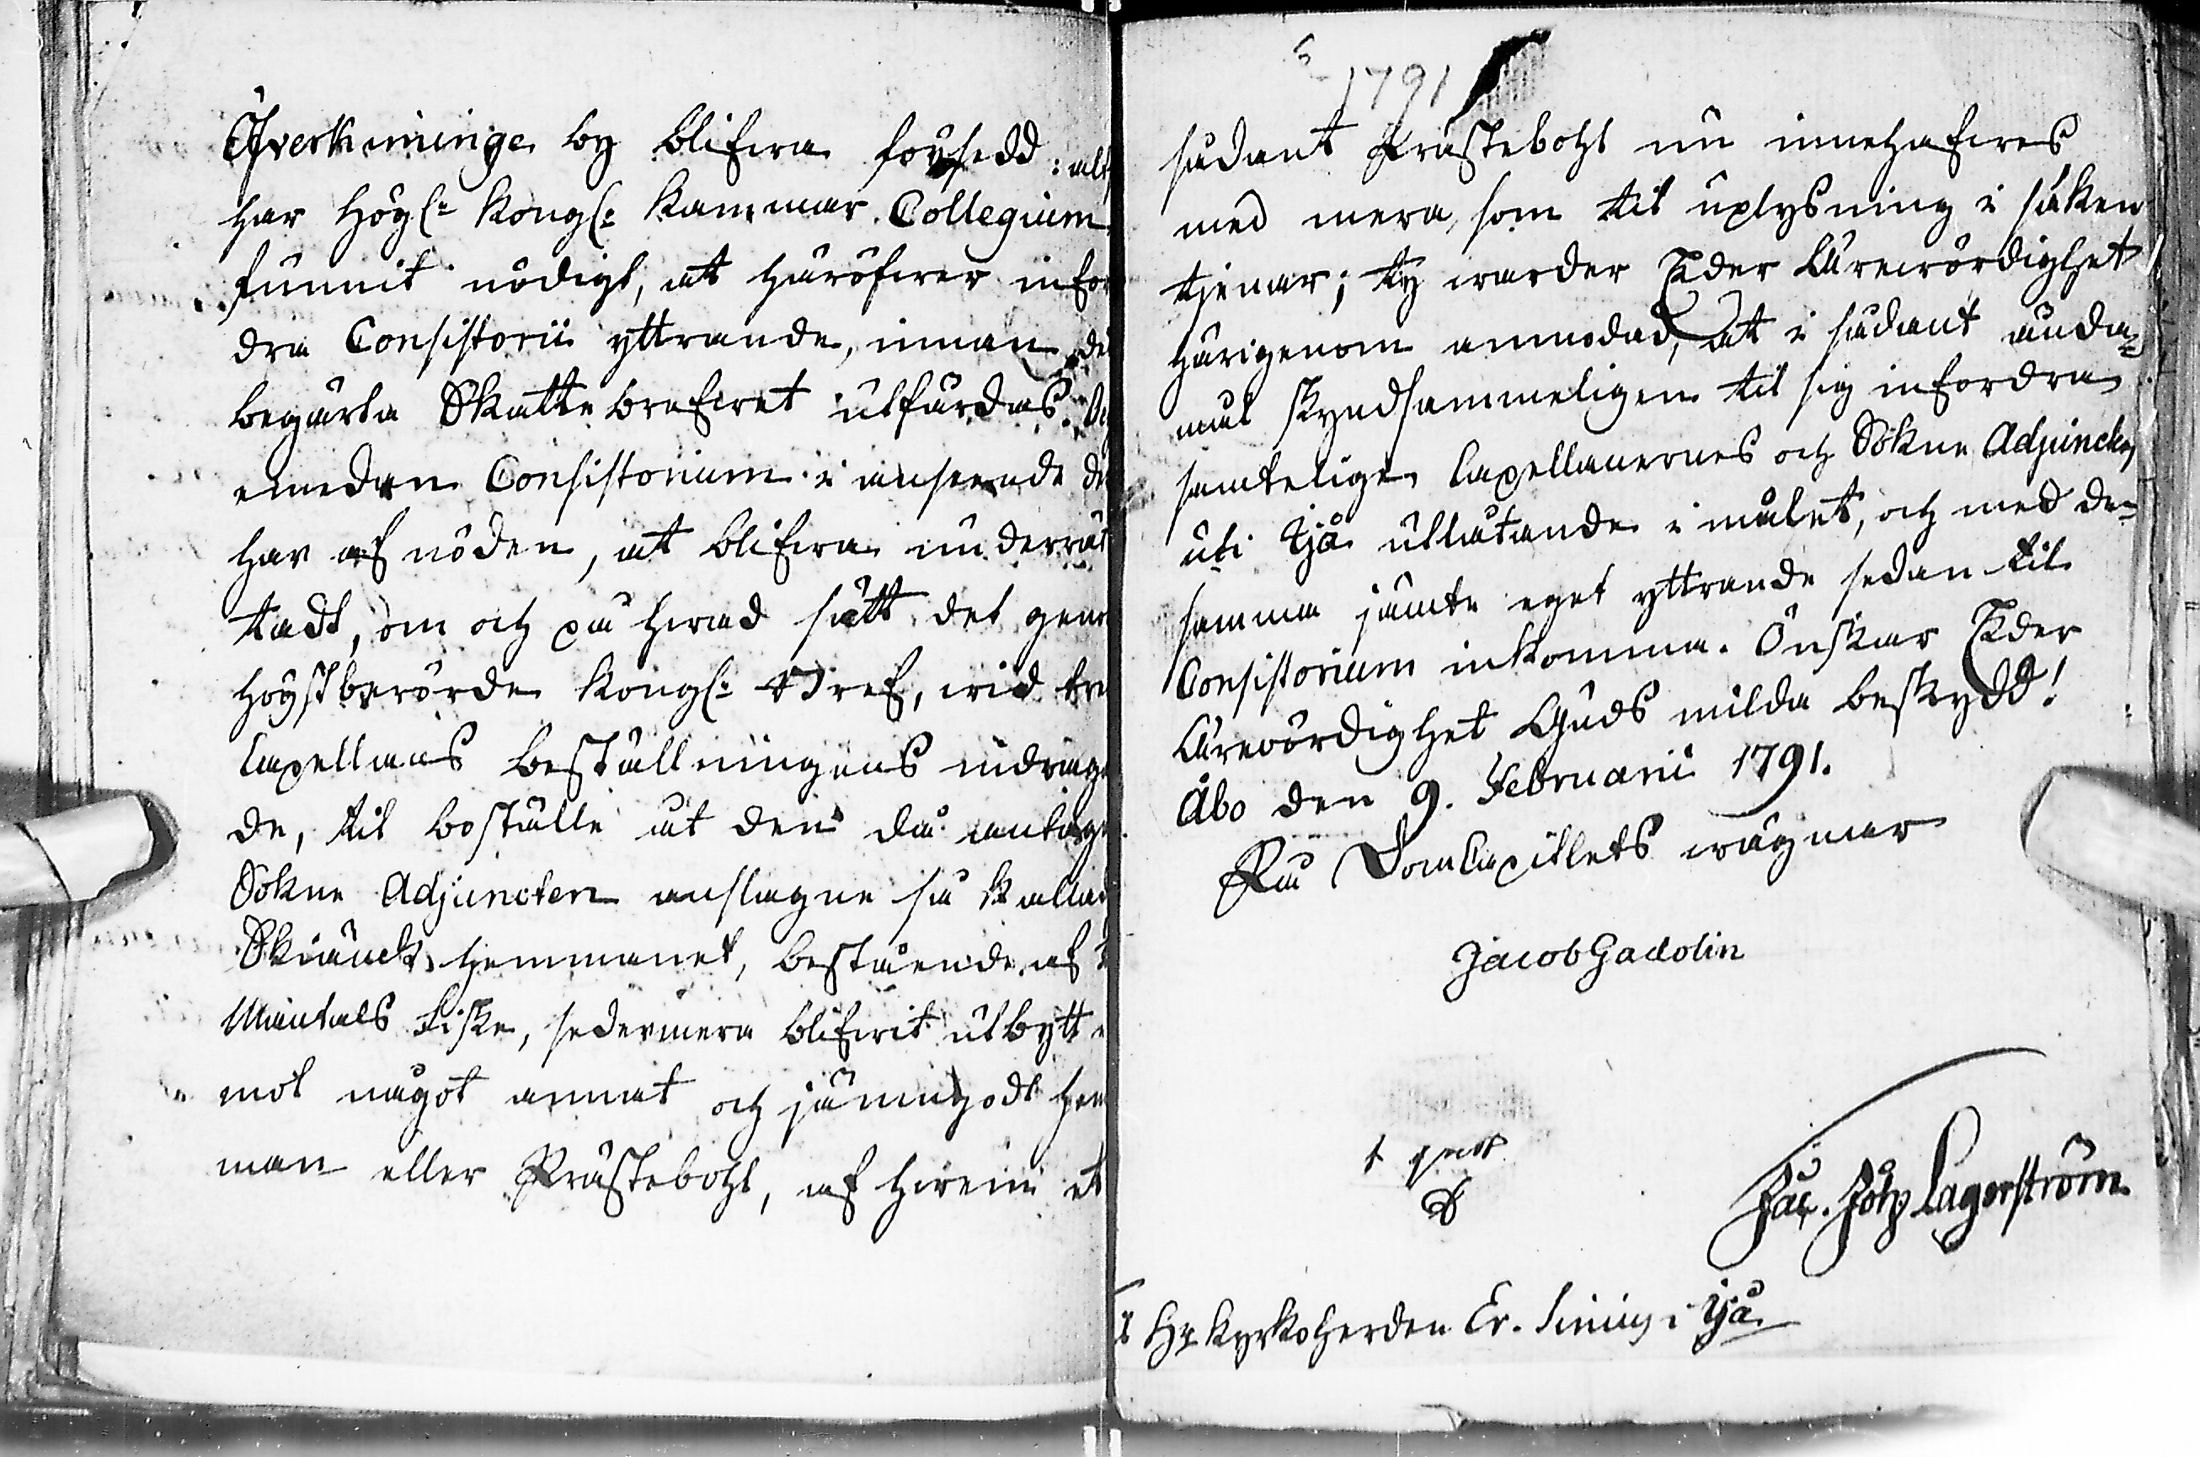 Öfverkiminge by blifwa försedd: alt
har Högl: Kongl: Kammar Collegium
funnit nödigt, at häröfwer infor
dra Consistorii yttrande, innan de
begärta Skatte brefwet utfärdas.
emedan Consistorium i anseende de
har af nöden, at blifwa underrät
tadt, om och på hwad sätt det genom
högstberörde Kongl: Bref, wid tre
Capellans beställningens indrage
de, til boställe åt den då antagne
Sokne Adjuncten anslagne så kallade
Skiäuck hemmanet, bestående af
Mantals Liske, sedermera blifwit utbytt e
mot något annat och jämngodt hem
man eller Prästebohl, af hwem et
1791
sådant Prästebohl nu innehafwes
med mera, som til uplysning i saken
tjenar; ty warder Eder Lärewördighet
härigenom anmodad, at i sådant ända¬
mål skyndsammeligen til sig infordra
samtelige Capellanernes och Sokne Adjunctens
uti Ijå utlåtande i målet, och med de¬
samma jämte eget yttrande sedan til
Consistorium inkomma. Önskar Eder
Lärewördighet Guds milda beskydd!
Åbo den 9. Februarii 1791.
På DomCapitlets wägnar
Jacob Gadolin
Jac. Joh Lagerström
Hr Kyrkoherden Er. Linius i Ijå